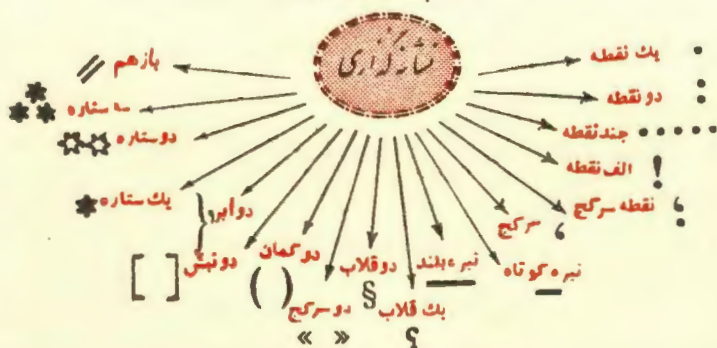 نشانه‌گذاری
یک نقطه .
دو نقطه :
چند نقطه .....
الف نقطه !
نقطه سرکج ؛
سرکج ،
تیره کوتاه -
تیره بلند —
یک قلاب ؟
دو قلاب §
دو سرکج « »
دو کمان ( )
دو نبش [ ]
دو ابرو {
یک ستاره *
دو ستاره ☆-☆
سه ستاره ***
باز هم //